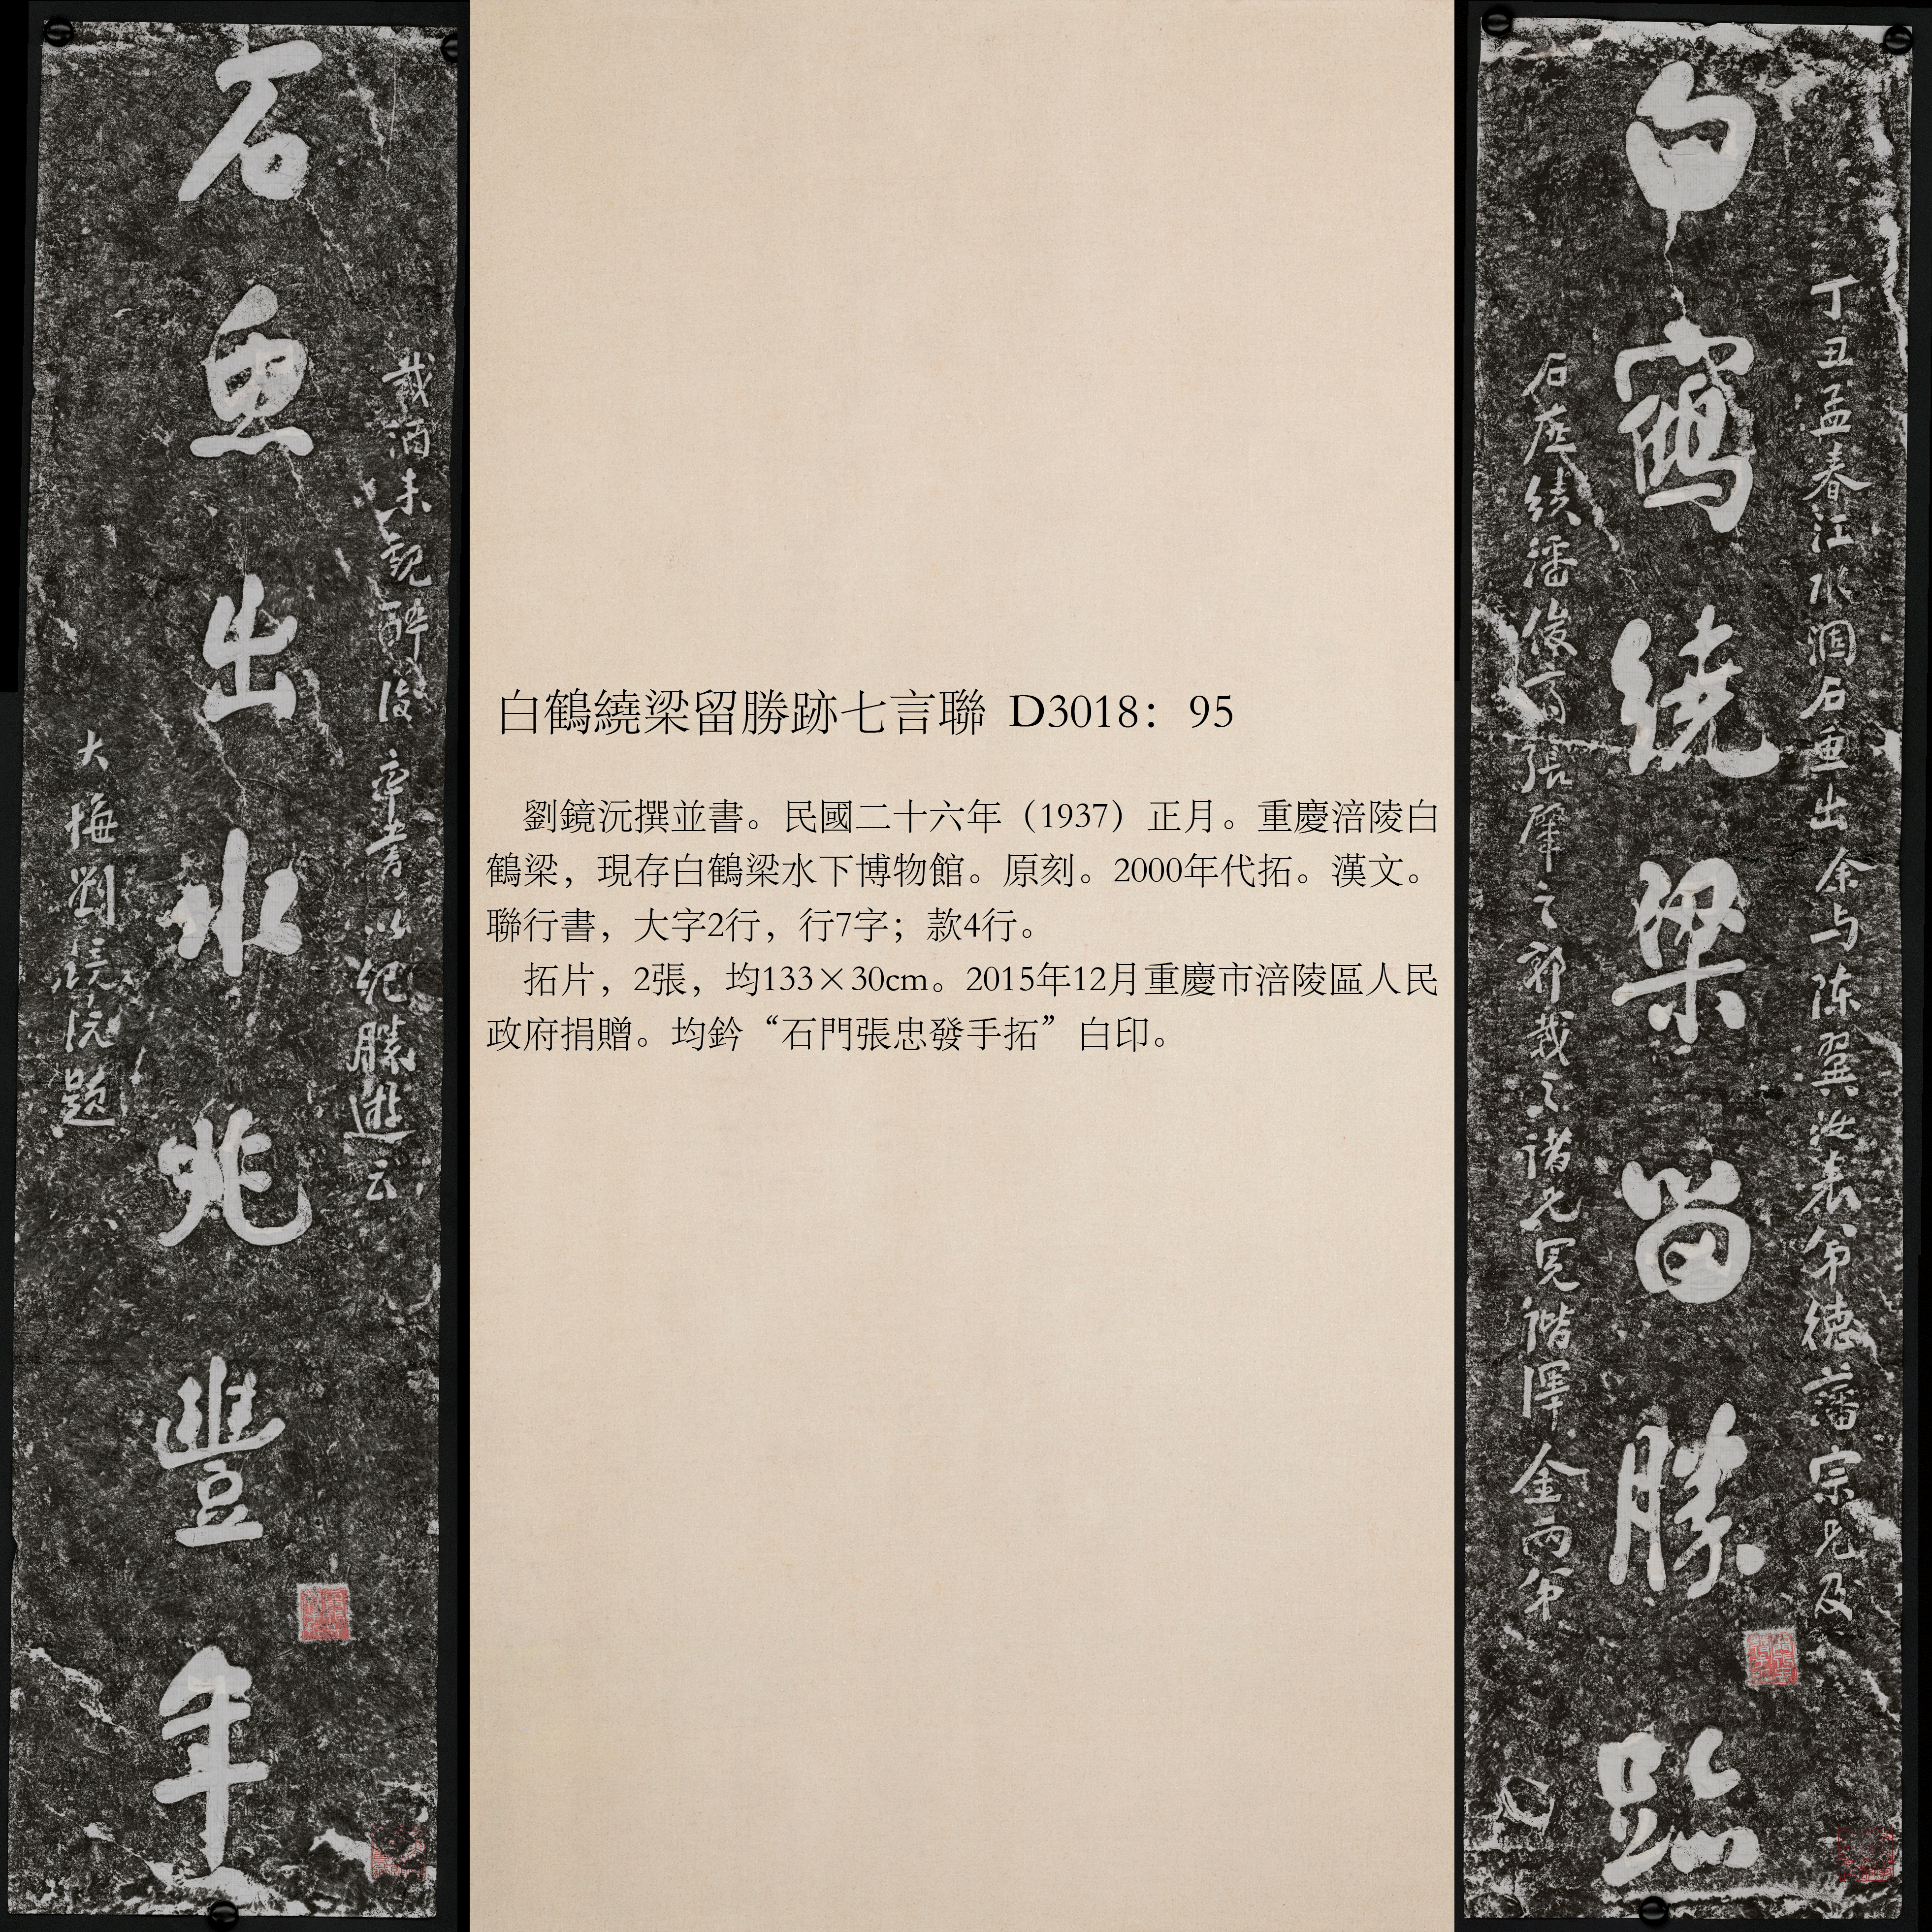 丁丑孟春江水涸石魚出余与陈翼汝表弟德藩宗兄及
白鶴繞梁留勝跡
石應績潘俊高張肇之郭載之諸兄冕階澤金两弟
載酒来觀醉後率書以紀勝遊云
石魚出水兆豐年
大悔劉鏡沅題
白鶴繞梁留勝跡七言聯 D3018：95
劉鏡沅撰並書。民國二十六年（1937）正月。重慶涪陵白
鶴梁，現存白鶴梁水下博物館。原刻。2000年代拓。漢文。
聯行書，大字2行，行7字；款4行。
拓片，2張，均133×30cm。2015年12月重慶市涪陵區人民
政府捐贈。均鈐“石門張忠發手拓”白印。